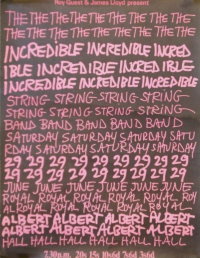 Roy Guest & James Lloyd present
THE THE THE THE THE THE THE THE
THE THE THE THE THE THE THE THE
INCREDIBLE INCREDIBLE INCRED
IBLE INCREDIBLE INCRED IBLE
INCREDIBLE INCREDIBLE INCREDIBLE
STRING STRING STRING STRING
STRING STRING STRING STRING
BAND BAND BAND BAND BAND
SATURDAY SATURDAY SATURDAY SATU
RDAY SATURDAY SATURDAY SATURDAY
29 29 29 29 29 29 29 29
29 29 29 29 29 29 29 29
JUNE JUNE JUNE JUNE JUNE JUNE
ROYAL ROYAL ROYAL ROYAL ROYAL
ROYAL ROYAL ROYAL ROYAL ROYAL
ALBERT ALBERT ALBERT ALBERT
ALBERT ALBERT ALBERT ALBERT
HALL HALL HALL HALL HALL HALL
7.30 p.m. 20s 15s 10s6d 5s6d 3s6d